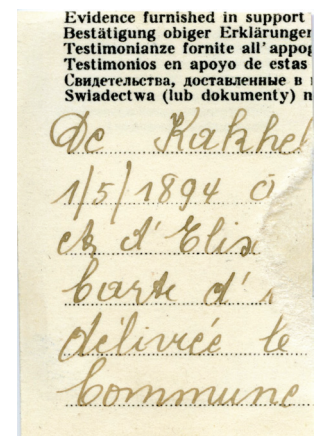 Evidence furnished in support
Bestätigung obiger Erklärunger
Testimonianze fornite all' appog
Testimonios en apoyo de estas
Свидетельства, доставленные в
Swiadectwa (lub dokumenty) n
De Kakhel
1/5/1894 à
et d' Elis
Carte d'
délivrée le
Commune